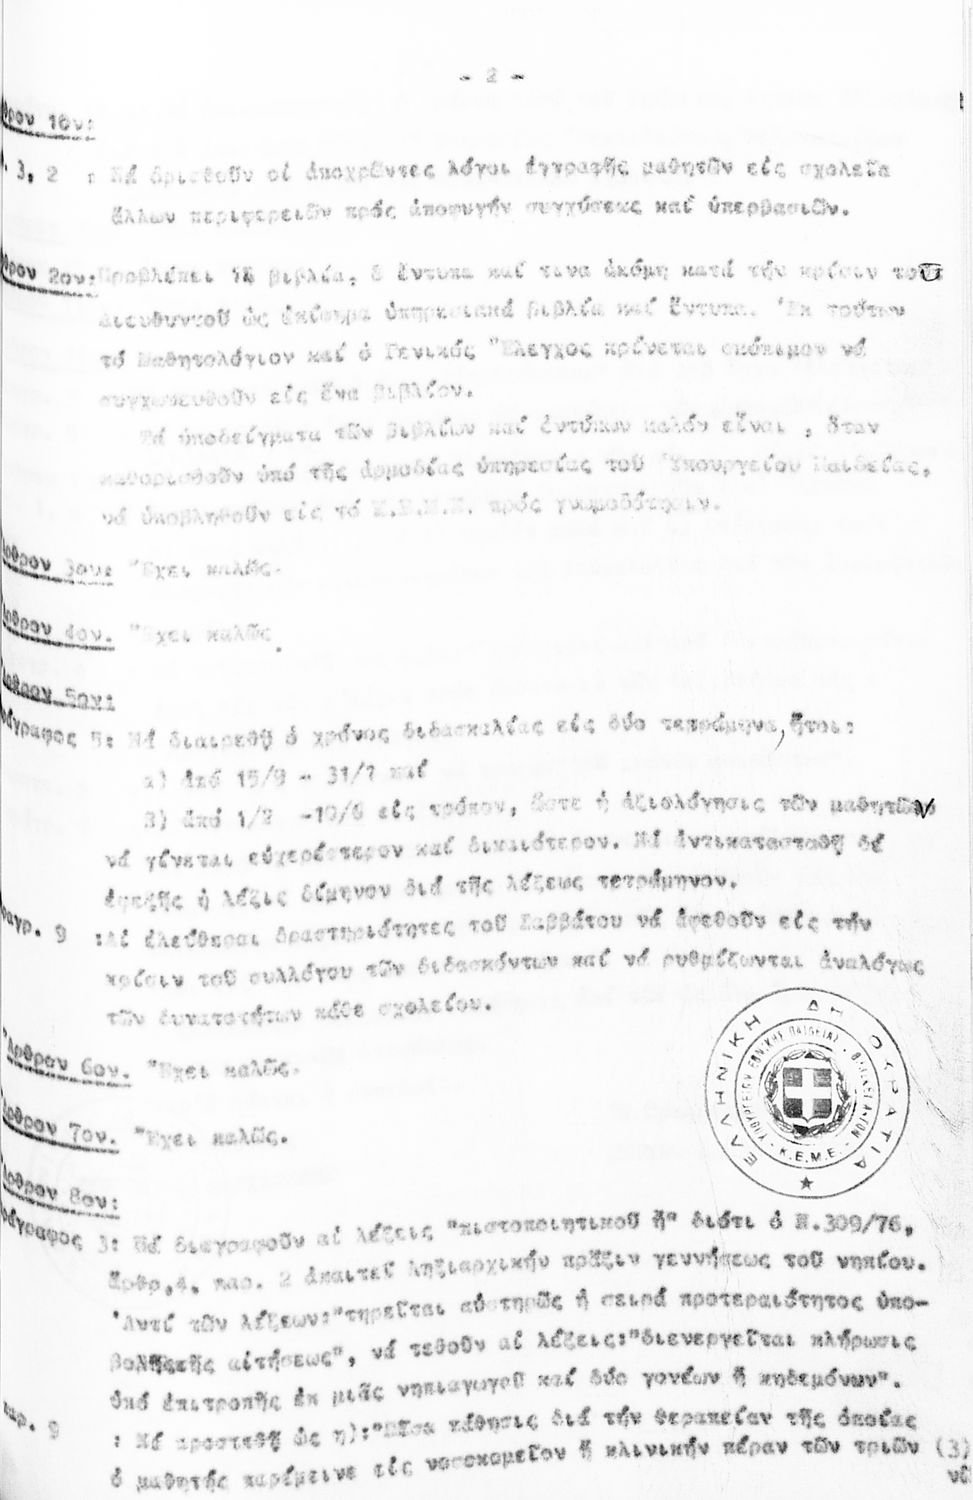 - 2 -
θρον 1ον:
. 3, 2 : Νά ὁρισθοῦν οἱ ἀποχρῶντες λόγοι ἐγγραφῆς μαθητῶν εἰς σχολεῖα
ἄλλων περιφερειῶν πρός ἀποφυγήν συγχύσεως καί ὑπερβασιῶν.
θρον 2ον: Προβλέπει βιβλία, ἔντυπα καί τινα ἀκόμη κατά τήν κρίσιν τοῦ
Διευθυντοῦ ὡς ἐπίσημα ὑπηρεσιακά βιβλία καί ἔντυπα. Ἐκ τούτων
τό Μαθητολόγιον καί ὁ Γενικός Ἔλεγχος κρίνεται σκόπιμον νά
συγχωνευθοῦν εἰς ἕνα βιβλίον.
Τά ὑποδείγματα τῶν βιβλίων καί ἐντύπων καλόν εἶναι , ὅταν
καθορισθοῦν ὑπό τῆς ἁρμοδίας ὑπηρεσίας τοῦ Ὑπουργείου Παιδείας,
νά ὑποβληθοῦν εἰς τό Κ.Ε.Μ.Ε. πρός γνωμοδότησιν.
Ἄρθρον 3ον: Ἔχει καλῶς.
Ἄρθρον 4ον. Ἔχει καλῶς.
Ἄρθρον 5ον:
ράγραφος 5: Νά διαιρεθῇ ὁ χρόνος διδασκαλίας εἰς δύο τετράμηνα, ἤτοι:
α) ἀπό 15/9 - 31/1 καί
β) ἀπό 1/2 -10/6 εἰς τρόπον, ὥστε ἡ ἀξιολόγησις τῶν μαθητῶν
νά γίνεται εὐχερέστερον καί δικαιότερον. Νά ἀντικατασταθῇ δέ
ἐφεξῆς ἡ λέξις δίμηνον διά τῆς λέξεως τετράμηνον.
ραγρ. 9 :Αἱ ἐλεύθεραι δραστηριότητες τοῦ Σαββάτου νά ἀφεθοῦν εἰς τήν
κρίσιν τοῦ συλλόγου τῶν διδασκόντων καί νά ρυθμίζωνται ἀναλόγως
τῶν δυνατοτήτων κάθε σχολείου.
Ἄρθρον 6ον. Ἔχει καλῶς.
Ἄρθρον 7ον. Ἔχει καλῶς.
ΕΛΛΗΝΙΚΗ ΔΗΜΟΚΡΑΤΙΑ
ΥΠΟΥΡΓΕΙΟΝ ΕΘΝΙΚΗΣ ΠΑΙΔΕΙΑΣ - ΘΡΗΣΚΕΥΜΑΤΩΝ
- Κ.Ε.Μ.Ε. -
Ἄρθρον 8ον:
ράγραφος 3: Νά διαγραφοῦν αἱ λέξεις "πιστοποιητικοῦ ἤ" διότι ὁ Ν.309/76,
ἄρθρ,4, παρ. 2 ἀπαιτεῖ ληξιαρχικήν πρᾶξιν γεννήσεως τοῦ νηπίου.
Ἀντί τῶν λέξεων:"τηρεῖται αὐστηρῶς ἡ σειρά προτεραιότητος ὑπο-
βολῆς τῆς αἰτήσεως", νά τεθοῦν αἱ λέξεις:"διενεργεῖται κλήρωσις
ὑπό ἐπιτροπῆς ἐκ μιᾶς νηπιαγωγοῦ καί δύο γονέων ἤ κηδεμόνων".
παρ. 9 : Νά προστεθῇ ὡς η):"Πᾶσα πάθησις διά τήν θεραπείαν τῆς ὁποίας
ὁ μαθητής παρέμεινε εἰς νοσοκομεῖον ἤ κλινικήν πέραν τῶν τριῶν (3)
νά